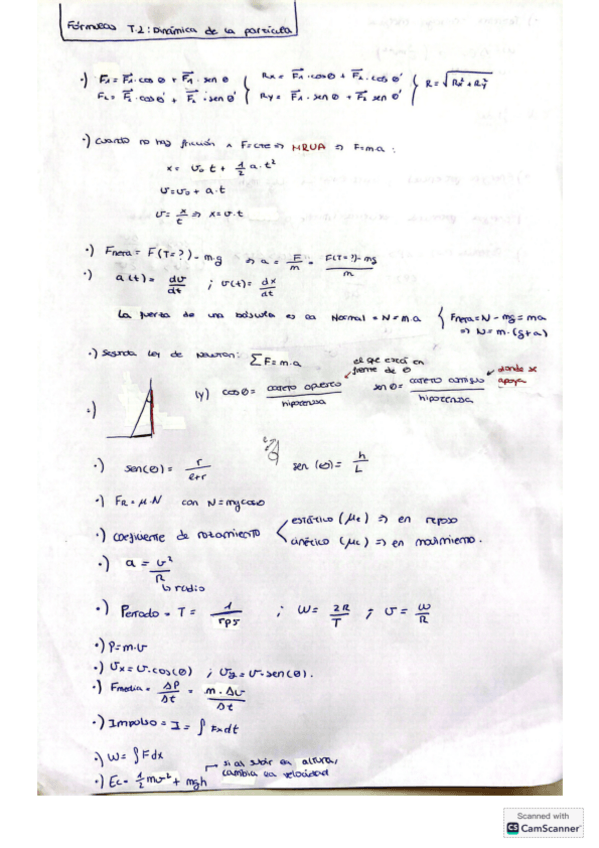 Fórmulas T.2: Dinámica de la partícula
·) F₁ = F₁·cos θ + F₁·sen θ { Rx = F₁·cosθ + F₂·cos θ' { R = √Rx² + Ry²
F₂ = F₂·cosθ' + F₂·senθ' { Ry = F₁·sen θ + F₂ sen θ'
·) Cuando no hay fricción ∧ F=cte ⇒ MRUA ⇒ F=m.a:
x = v₀t + 1/2 a·t²
v = v₀ + a.t
v = x/t ⇒ x = v.t
·) Fneta = F(T=?) - m.g ⇒ a = F/m = F(T=?) - mg/m
·) a(t) = dv/dt ; v(t) = dx/dt
La fuerza de una báscula es la Normal = N = m.a { Fneta = N - mg = ma
⇒ N = m·(g+a)
·) Segunda Ley de Newton: ∑F = m.a
el que está en frente de θ
donde se apoya
·) (y) cosθ = cateto opuesto/hipotenusa sen θ = cateto contiguo/hipotenusa
·) sen(θ) = r/e+r sen(θ) = h/L
·) FR = μ·N con N = mgcosθ
·) Coeficiente de rozamiento < estático (μe) ⇒ en reposo
cinético (μc) ⇒ en movimiento.
·) a = v²/R
↳ radio
·) Período = T = 1/rps ; W = 2R/T ; v = ω/R
·) P = m·v
·) Vx = v·cos(θ) ; Vy = v·sen(θ).
·) Fmedia = ΔP/Δt = m·Δv/Δt
·) Impulso = I = ∫ Fxdt
·) W = ∫ F dx
si al subir en altura, cambia la velocidad
·) Ec = 1/2 mv² + mgh
Scanned with
CS CamScanner